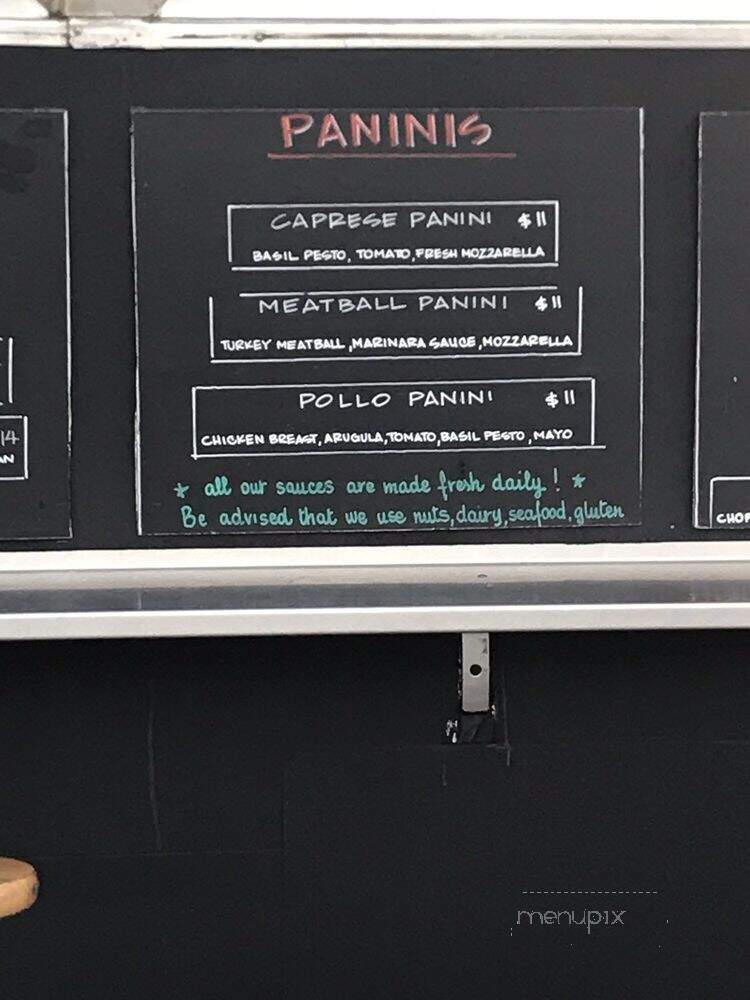 PANINIS
CAPRESE PANINI $11
BASIL PESTO, TOMATO, FRESH MOZZARELLA
MEATBALL PANINI $11
TURKEY MEATBALL, MARINARA SAUCE, MOZZARELLA
POLLO PANINI $11
CHICKEN BREAST, ARUGULA, TOMATO, BASIL PESTO, MAYO
* all our sauces are made fresh daily! *
Be advised that we use nuts, dairy, seafood, gluten
14
AN
CHOP
menupix